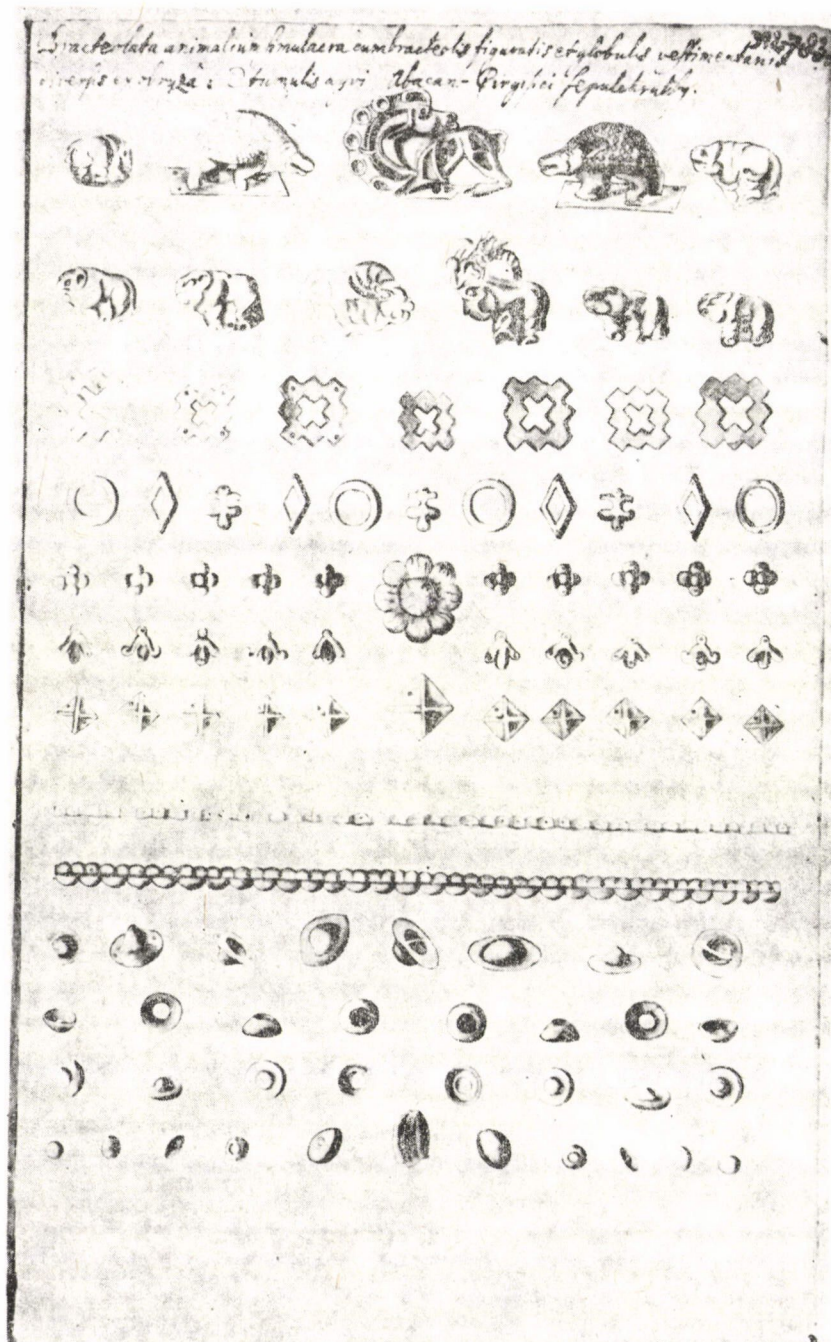 Bracteolata animalium simulacra cum bracteolis figuratis et globulis vestimentariis
ex obryza: E tumulis agri Abacan-Girgisici sepulchralib9.